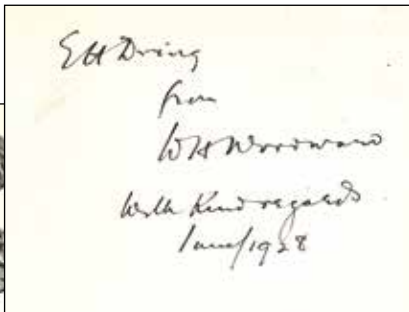 EH Dring
from
WH Woodward
With Kind regards
June/1928